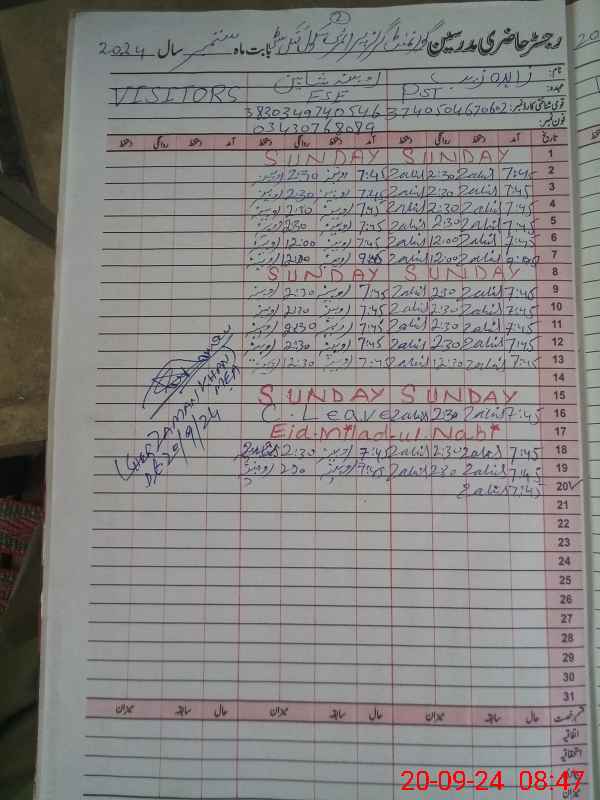 رجسٹر حاضری مدرسین گورنمنٹ گرلز پرائمری سکول بابت ماہ ستمبر سال 2024
نام: زاہدہ زینب روبینہ شاہین
عہدہ: PST ESE VISITORS
قومی شناختی کارڈ نمبر: 3740504670602 3830349740546
فون نمبر: 03430768089
تاریخ آمد دستخط روانگی دستخط آمد دستخط روانگی دستخط آمد دستخط روانگی دستخط
1 SUNDAY SUNDAY
2 7:45 Zahid 2:30 Zahid 7:45 روبینہ 2:30 روبینہ
3 7:45 Zahid 2:30 Zahid 7:45 روبینہ 2:30 روبینہ
4 7:45 Zahid 2:30 Zahid 7:45 روبینہ 2:30 روبینہ
5 7:45 Zahid 2:30 Zahid 7:45 روبینہ 2:30 روبینہ
6 7:45 Zahid 12:00 Zahid 7:45 روبینہ 12:00 روبینہ
7 Zahid 12:00 Zahid روبینہ روبینہ
8 SUNDAY SUNDAY
9 7:45 Zahid 2:30 Zahid 7:45 روبینہ 2:30 روبینہ
10 7:45 Zahid 2:30 Zahid 7:45 روبینہ 2:30 روبینہ
11 7:45 Zahid 2:30 Zahid 7:45 روبینہ 2:30 روبینہ
12 7:45 Zahid 2:30 Zahid 7:45 روبینہ 2:30 روبینہ
13 7:45 Zahid 12:30 Zahid 7:45 روبینہ 12:30 روبینہ
14
15 SUNDAY SUNDAY
16 7:45 Zahid 2:30 Zahid C. Leave
17 Eid-Milad-ul-Nabi
18 7:45 Zahid 2:30 Zahid 7:45 روبینہ 2:30
19 7:45 Zahid 2:30 Zahid 7:45 روبینہ 2:30 روبینہ
20 7:45 Zahid
21
22
23
24
25
26
27
28
29
30
31
SHER ZAMAN KHAN
MEA
20/9/24
قسم رخصت حال سابقہ میزان حال سابقہ میزان حال سابقہ میزان
اتفاقیہ
میزان
20-09-24 08:47